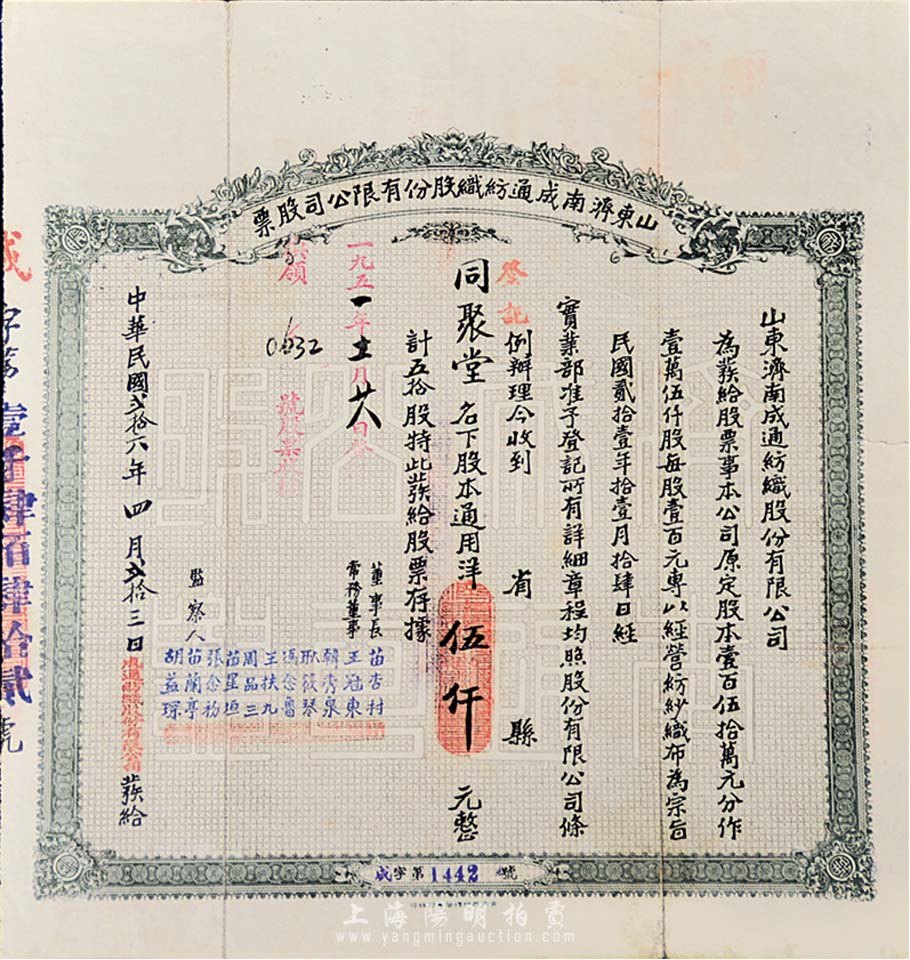 山東濟南成通紡織股份有限公司股票
山東濟南成通紡織股份有限公司
為發給股票事本公司原定股本壹百伍拾萬元分作
壹萬伍仟股每股壹百元專以經營紡紗織布為宗旨
民國貳拾壹年拾壹月拾肆日經
實業部准予登記所有詳細章程均照股份有限公司條
例辦理今收到 省 縣
登記
同聚堂名下股本通用洋伍仟元整
計五拾股特此發給股票存據
一九五一年十二月廿八日
領 0632 號股票
董事長 苗杏村
常務董事 王冠東
韓秀泉
耿筱琴
馮念魯
王扶九
周品三
苗星垣
張念初
監察人 苗蘭亭
胡益琛
中華民國弍拾六年四月弍拾三日
發給
字第壹仟肆佰肆拾貳號
成字第1442號
上海陽明拍賣
www.yangmingauction.com